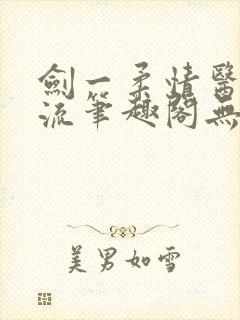 劍一柔情醫
流筆趣閣無
美男如雪